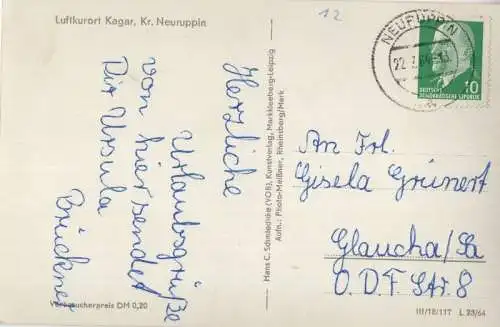 Luftkurort Kagar, Kr. Neuruppin
12
Herzliche
Urlaubsgrüße
von hier sendet
Dir Ursula
Brückner
Verbraucherpreis DM 0,20
Hans C. Schmiedicke (VOB), Kunstverlag, Markkleeberg-Leipzig
Aufn.: Photo-Meißner, Rheinsberg/Mark
NEURUPPIN
DEUTSCHE
DEMOKRATISCHE REPUBLIK
10
An Frl.
Gisela Grünert
Glaucha/Sa
O.D.F. Str. 8
III/18/117 L 23/64